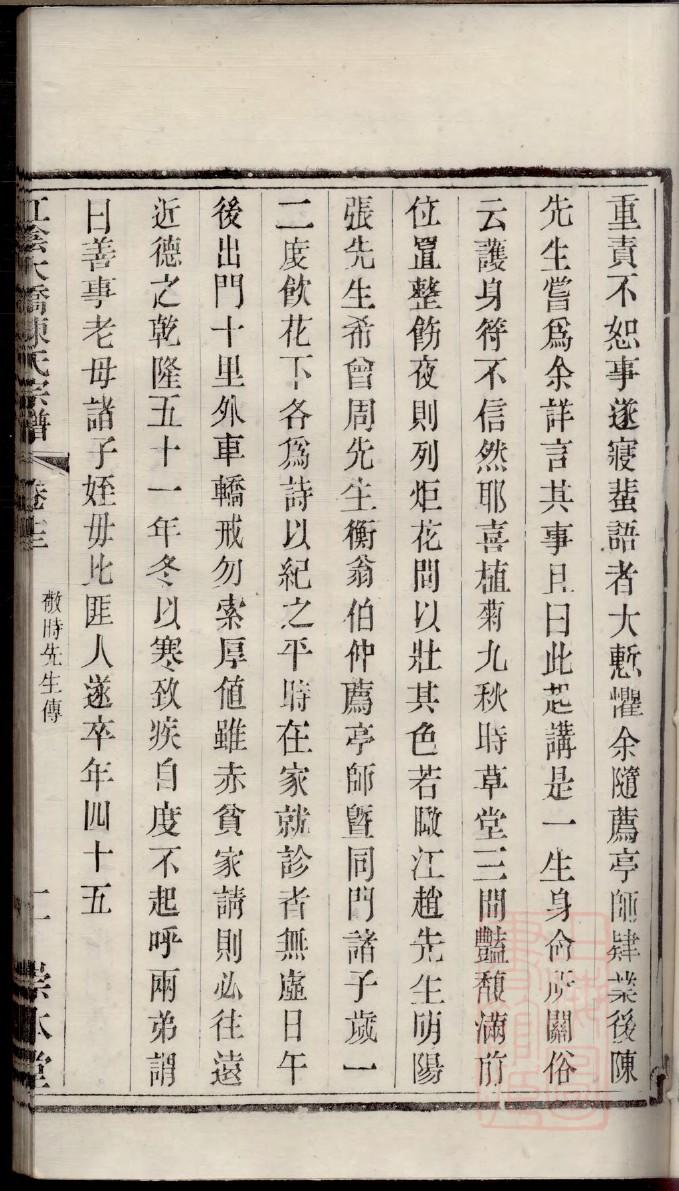 重責不恕事遂寢蜚語者大慙懼余隨薦亭師肄業後陳
先生嘗爲余詳言其事且曰此起講是一生身命所關俗
云護身符不信然耶喜植菊九秋時草堂三間豔馥滿前
位置整飭夜則列炬花間以壯其色若瞰江趙先生明陽
張先生希曾周先生衡翁伯仲薦亭師曁同門諸子歲一
二度飮花下各爲詩以紀之平時在家就診者無虛日午
後出門十里外車轎戒勿索厚値雖赤貧家請則必往遠
近德之乾隆五十一年冬以寒致疾自度不起呼兩弟謂
曰善事老母諸子姪毋比匪人遂卒年四十五
江陰大橋陳氏宗譜
卷三
敬時先生傳
二
崇本堂